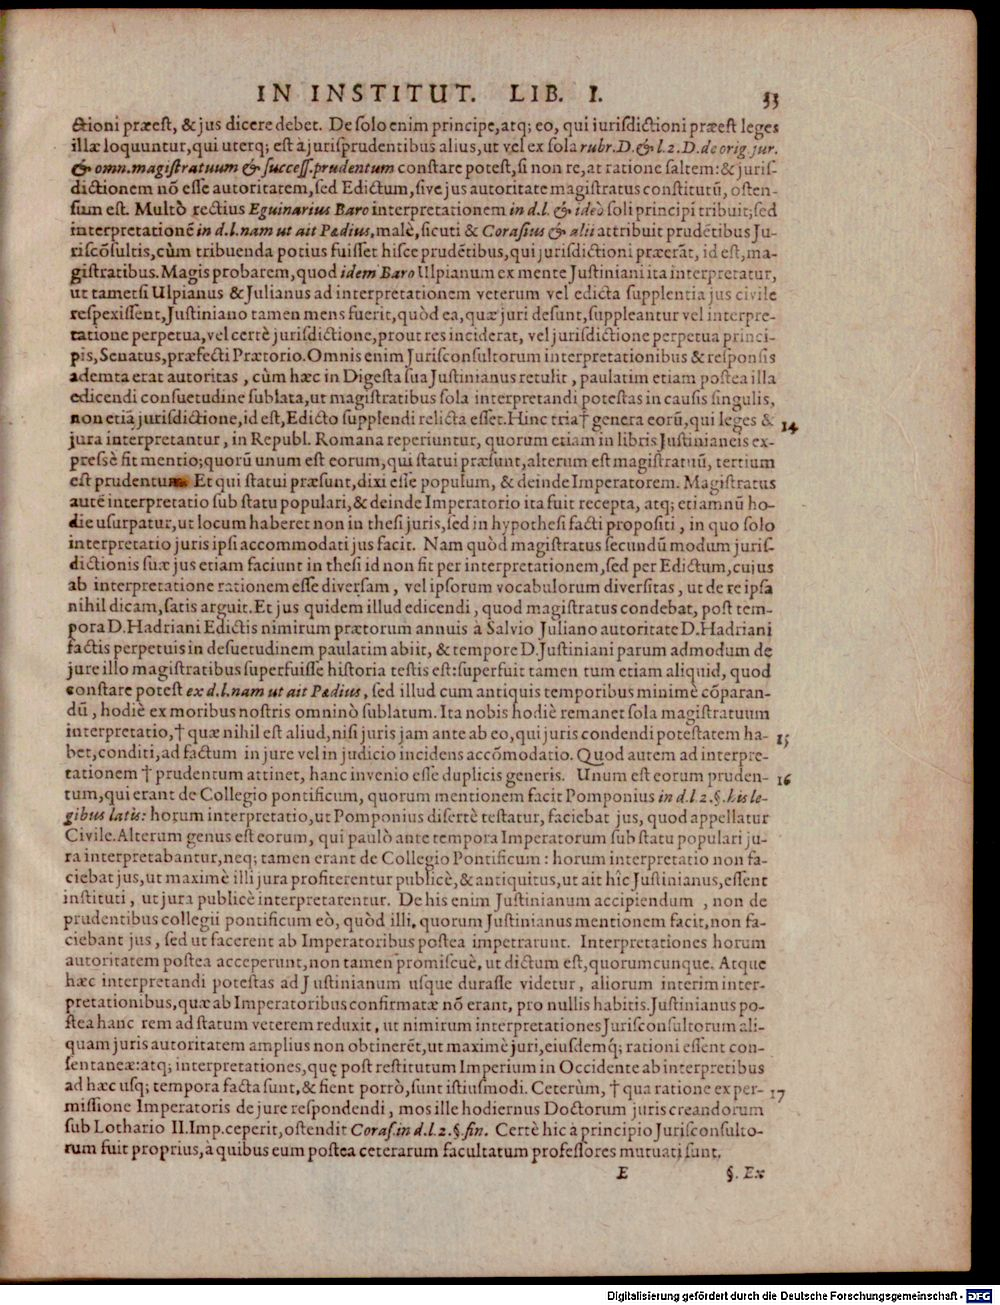 IN INSTITUT. LIB. I. 33
ctioni præest, & jus dicere debet. De solo enim principe, atq; eo, qui iurisdictioni præest leges
illæ loquuntur, qui uterq; est à jurisprudentibus alius, ut vel ex sola rubr. D. & l. 2. D. de orig. jur.
& omn. magistratuum & success. prudentum constare potest, si non re, at ratione saltem: & juris-
dictionem nō esse autoritatem, sed Edictum, sive jus autoritate magistratus constitutū, osten-
sum est. Multò rectius Eguinarius Baro interpretationem in d. l. & ideò soli principi tribuit; sed
interpretationē in d. l. nam ut ait Pædius, malè, sicuti & Corasius & alii attribuit prudētibus Ju-
riscōsultis, cùm tribuenda potius fuisset hisce prudētibus, qui jurisdictioni præerāt, id est, ma-
gistratibus. Magis probarem, quod idem Baro Ulpianum ex mente Justiniani ita interpretatur,
ut tametsi Ulpianus & Julianus ad interpretationem veterum vel edicta supplentia jus civile
respexissent, Justiniano tamen mens fuerit, quòd ea, quæ juri desunt, suppleantur vel interpre-
tatione perpetua, vel certè jurisdictione, prout res inciderat, vel jurisdictione perpetua princi-
pis, Senatus, præfecti Prætorio. Omnis enim Jurisconsultorum interpretationibus & responsis
ademta erat autoritas, cùm hæc in Digesta sua Justinianus retulit, paulatim etiam postea illa
edicendi consuetudine sublata, ut magistratibus sola interpretandi potestas in causis singulis,
non etiā jurisdictione, id est, Edicto supplendi relicta esset. Hinc tria† genera eorū, qui leges & 14
jura interpretantur, in Republ. Romana reperiuntur, quorum etiam in libris Justinianeis ex-
pressè fit mentio; quorū unum est eorum, qui statui præsunt, alterum est magistratuū, tertium
est prudentum. Et qui statui præsunt, dixi esse populum, & deinde Imperatorem. Magistratus
autē interpretatio sub statu populari, & deinde Imperatorio ita fuit recepta, atq; etiamnū ho-
die usurpatur, ut locum haberet non in thesi juris, sed in hypothesi facti propositi, in quo solo
interpretatio juris ipsi accommodati jus facit. Nam quòd magistratus secundū modum juris-
dictionis suæ jus etiam faciunt in thesi id non fit per interpretationem, sed per Edictum, cujus
ab interpretatione rationem esse diversam, vel ipsorum vocabulorum diversitas, ut de re ipsa
nihil dicam, satis arguit. Et jus quidem illud edicendi, quod magistratus condebat, post tem-
pora D. Hadriani Edictis nimirum prætorum annuis à Salvio Juliano autoritate D. Hadriani
factis perpetuis in desuetudinem paulatim abiit, & tempore D. Justiniani parum admodum de
jure illo magistratibus superfuisse historia testis est: superfuit tamen tum etiam aliquid, quod
constare potest ex d. l. nam ut ait Pædius, sed illud cum antiquis temporibus minimè cōparan-
dū, hodiè ex moribus nostris omninò sublatum. Ita nobis hodiè remanet sola magistratuum
interpretatio, † quæ nihil est aliud, nisi juris jam ante ab eo, qui juris condendi potestatem ha- 15
bet, conditi, ad factum in jure vel in judicio incidens accōmodatio. Quod autem ad interpre-
tationem † prudentum attinet, hanc invenio esse duplicis generis. Unum est eorum pruden- 16
tum, qui erant de Collegio pontificum, quorum mentionem facit Pomponius in d. l. 2. §. his le-
gibus latis: horum interpretatio, ut Pomponius disertè testatur, faciebat jus, quod appellatur
Civile. Alterum genus est eorum, qui paulò ante tempora Imperatorum sub statu populari ju-
ra interpretabantur, neq; tamen erant de Collegio Pontificum: horum interpretatio non fa-
ciebat jus, ut maximè illi jura profiterentur publicè, & antiquitus, ut ait hîc Justinianus, essent
instituti, ut jura publicè interpretarentur. De his enim Justinianum accipiendum, non de
prudentibus collegii pontificum eò, quòd illi, quorum Justinianus mentionem facit, non fa-
ciebant jus, sed ut facerent ab Imperatoribus postea impetrarunt. Interpretationes horum
autoritatem postea acceperunt, non tamen promiscuè, ut dictum est, quorumcunque. Atque
hæc interpretandi potestas ad Justinianum usque durasse videtur, aliorum interim inter-
pretationibus, quæ ab Imperatoribus confirmatæ nō erant, pro nullis habitis. Justinianus po-
stea hanc rem ad statum veterem reduxit, ut nimirum interpretationes Jurisconsultorum ali-
quam juris autoritatem amplius non obtinerēt, ut maximè juri, eiusdemq́; rationi essent con-
sentaneæ: atq; interpretationes, quę post restitutum Imperium in Occidente ab interpretibus
ad hæc usq; tempora facta sunt, & fient porrò, sunt istiusmodi. Ceterùm, † qua ratione ex per- 17
missione Imperatoris de jure respondendi, mos ille hodiernus Doctorum juris creandorum
sub Lothario II. Imp. ceperit, ostendit Coras. in d. l. 2. §. fin. Certè hic à principio Jurisconsulto-
rum fuit proprius, à quibus eum postea ceterarum facultatum professores mutuati sunt.
E §. Ex
Digitalisierung gefördert durch die Deutsche Forschungsgemeinschaft - DFG